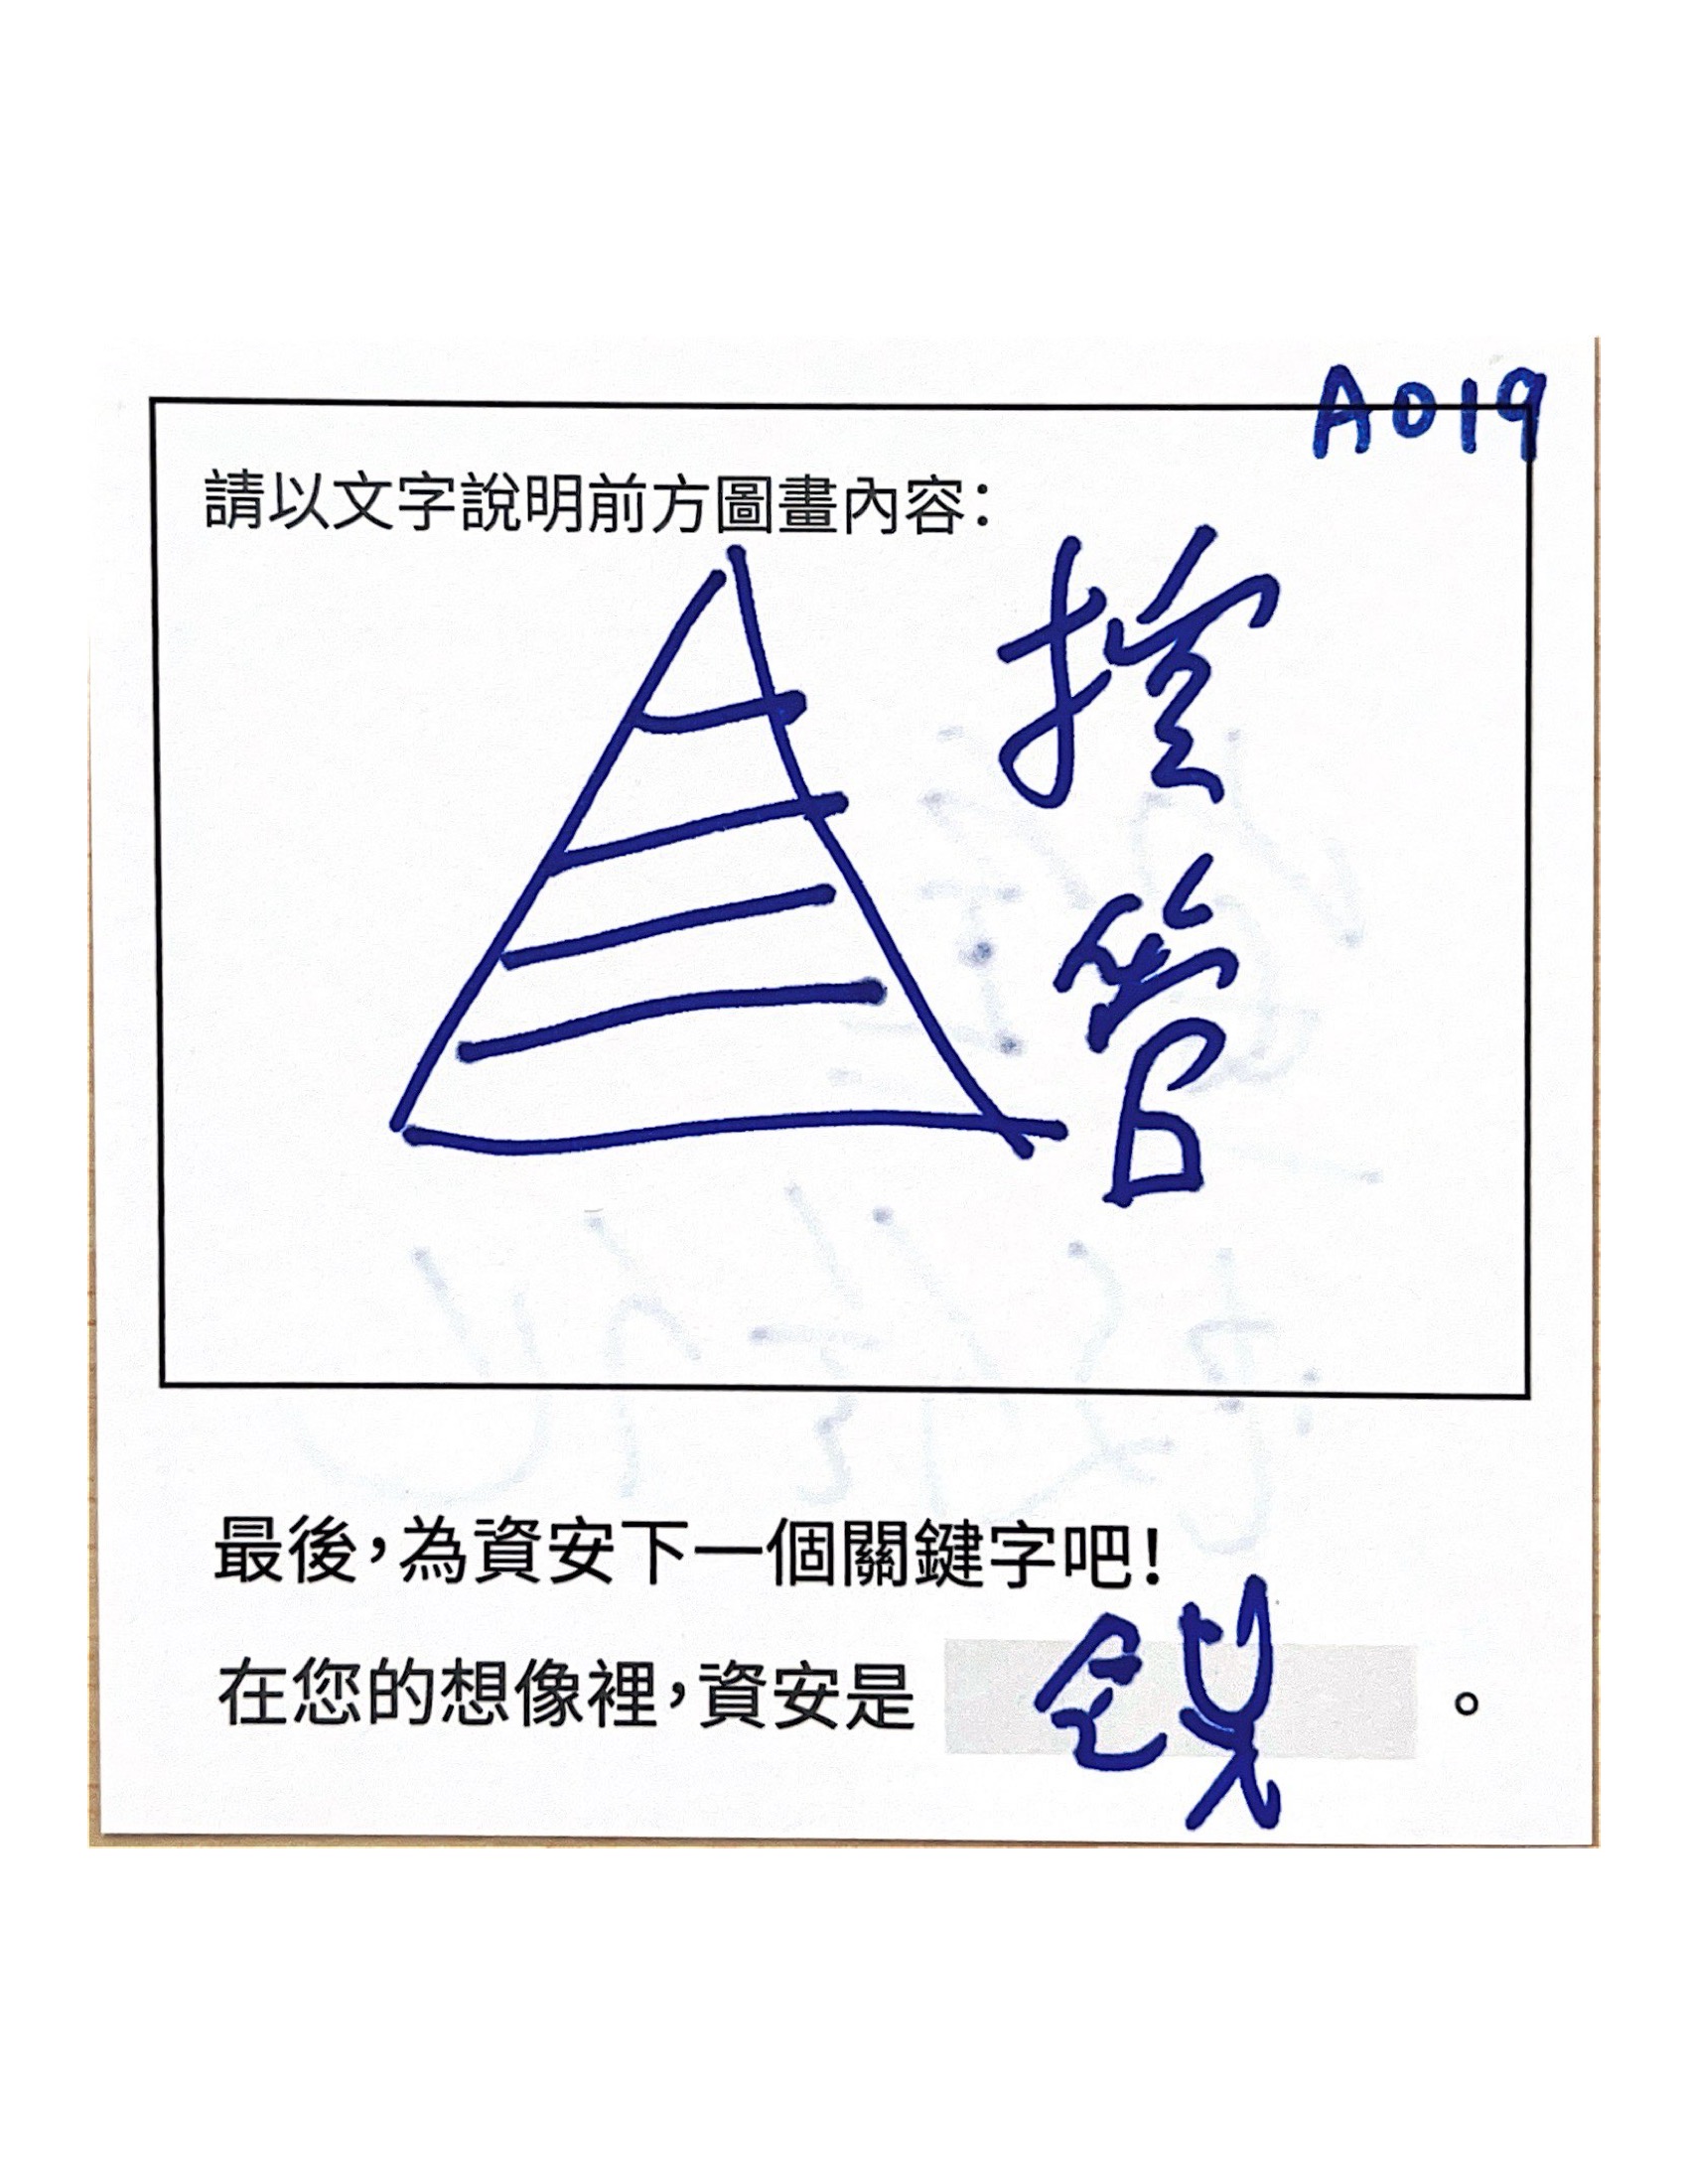 A019
請以文字說明前方圖畫內容：
控管
最後，為資安下一個關鍵字吧！
在您的想像裡，資安是 。